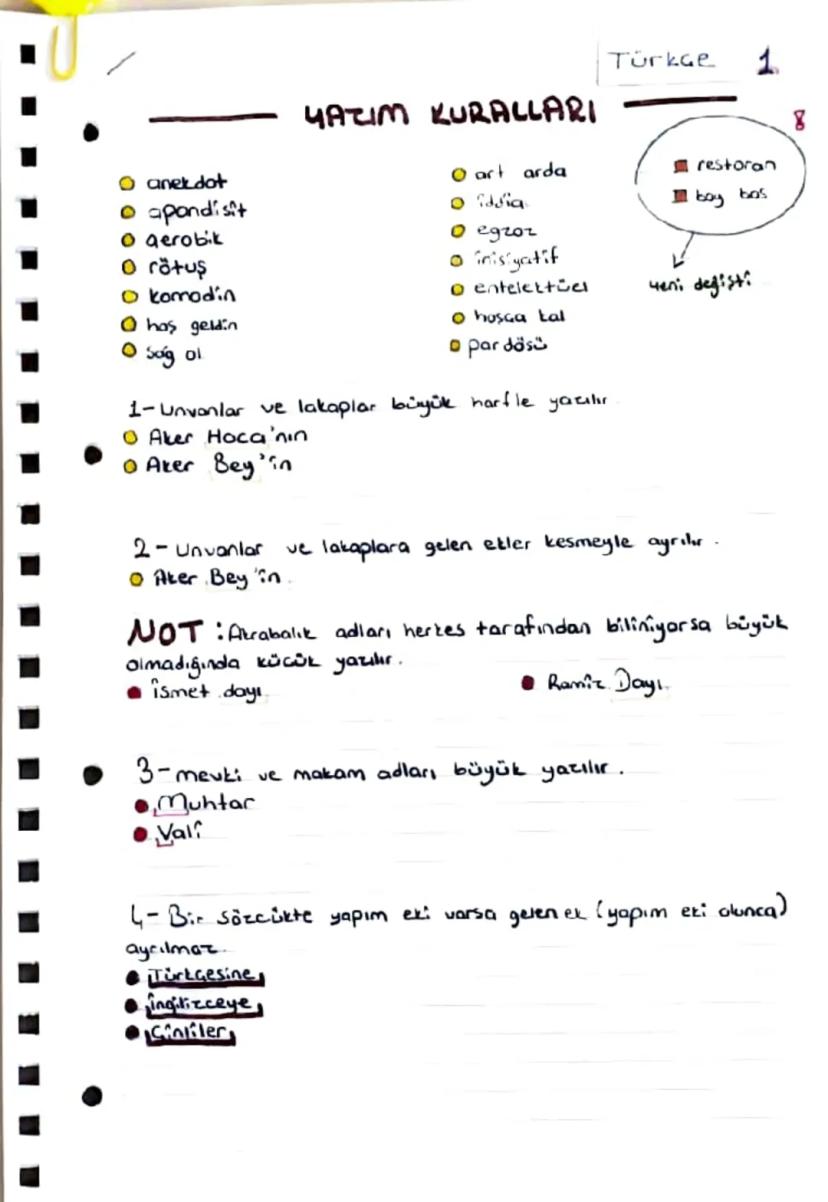 Türkçe 1
YAZIM KURALLARI
8
anekdot
apandisit
aerobik
rötuş
komodin
hoş geldin
sağ ol
art arda
iddia
egzoz
inisiyatif
entelektüel
hoşça kal
pardösü
restoran
boy bos
yeni değişti
1- Unvanlar ve lakaplar büyük harfle yazılır.
Aker Hoca'nın
Aker Bey'in
2- Unvanlar ve lakaplara gelen ekler kesmeyle ayrılır.
Aker Bey'in
NOT : Akrabalık adları herkes tarafından biliniyorsa büyük
olmadığında küçük yazılır.
İsmet dayı
Ramiz Dayı
3- mevki ve makam adları büyük yazılır.
Muhtar
Vali
4- Bir sözcükte yapım eki varsa gelen ek (yapım eki olunca)
ayrılmaz.
Türkçesine
İngilizceye
Çinliler